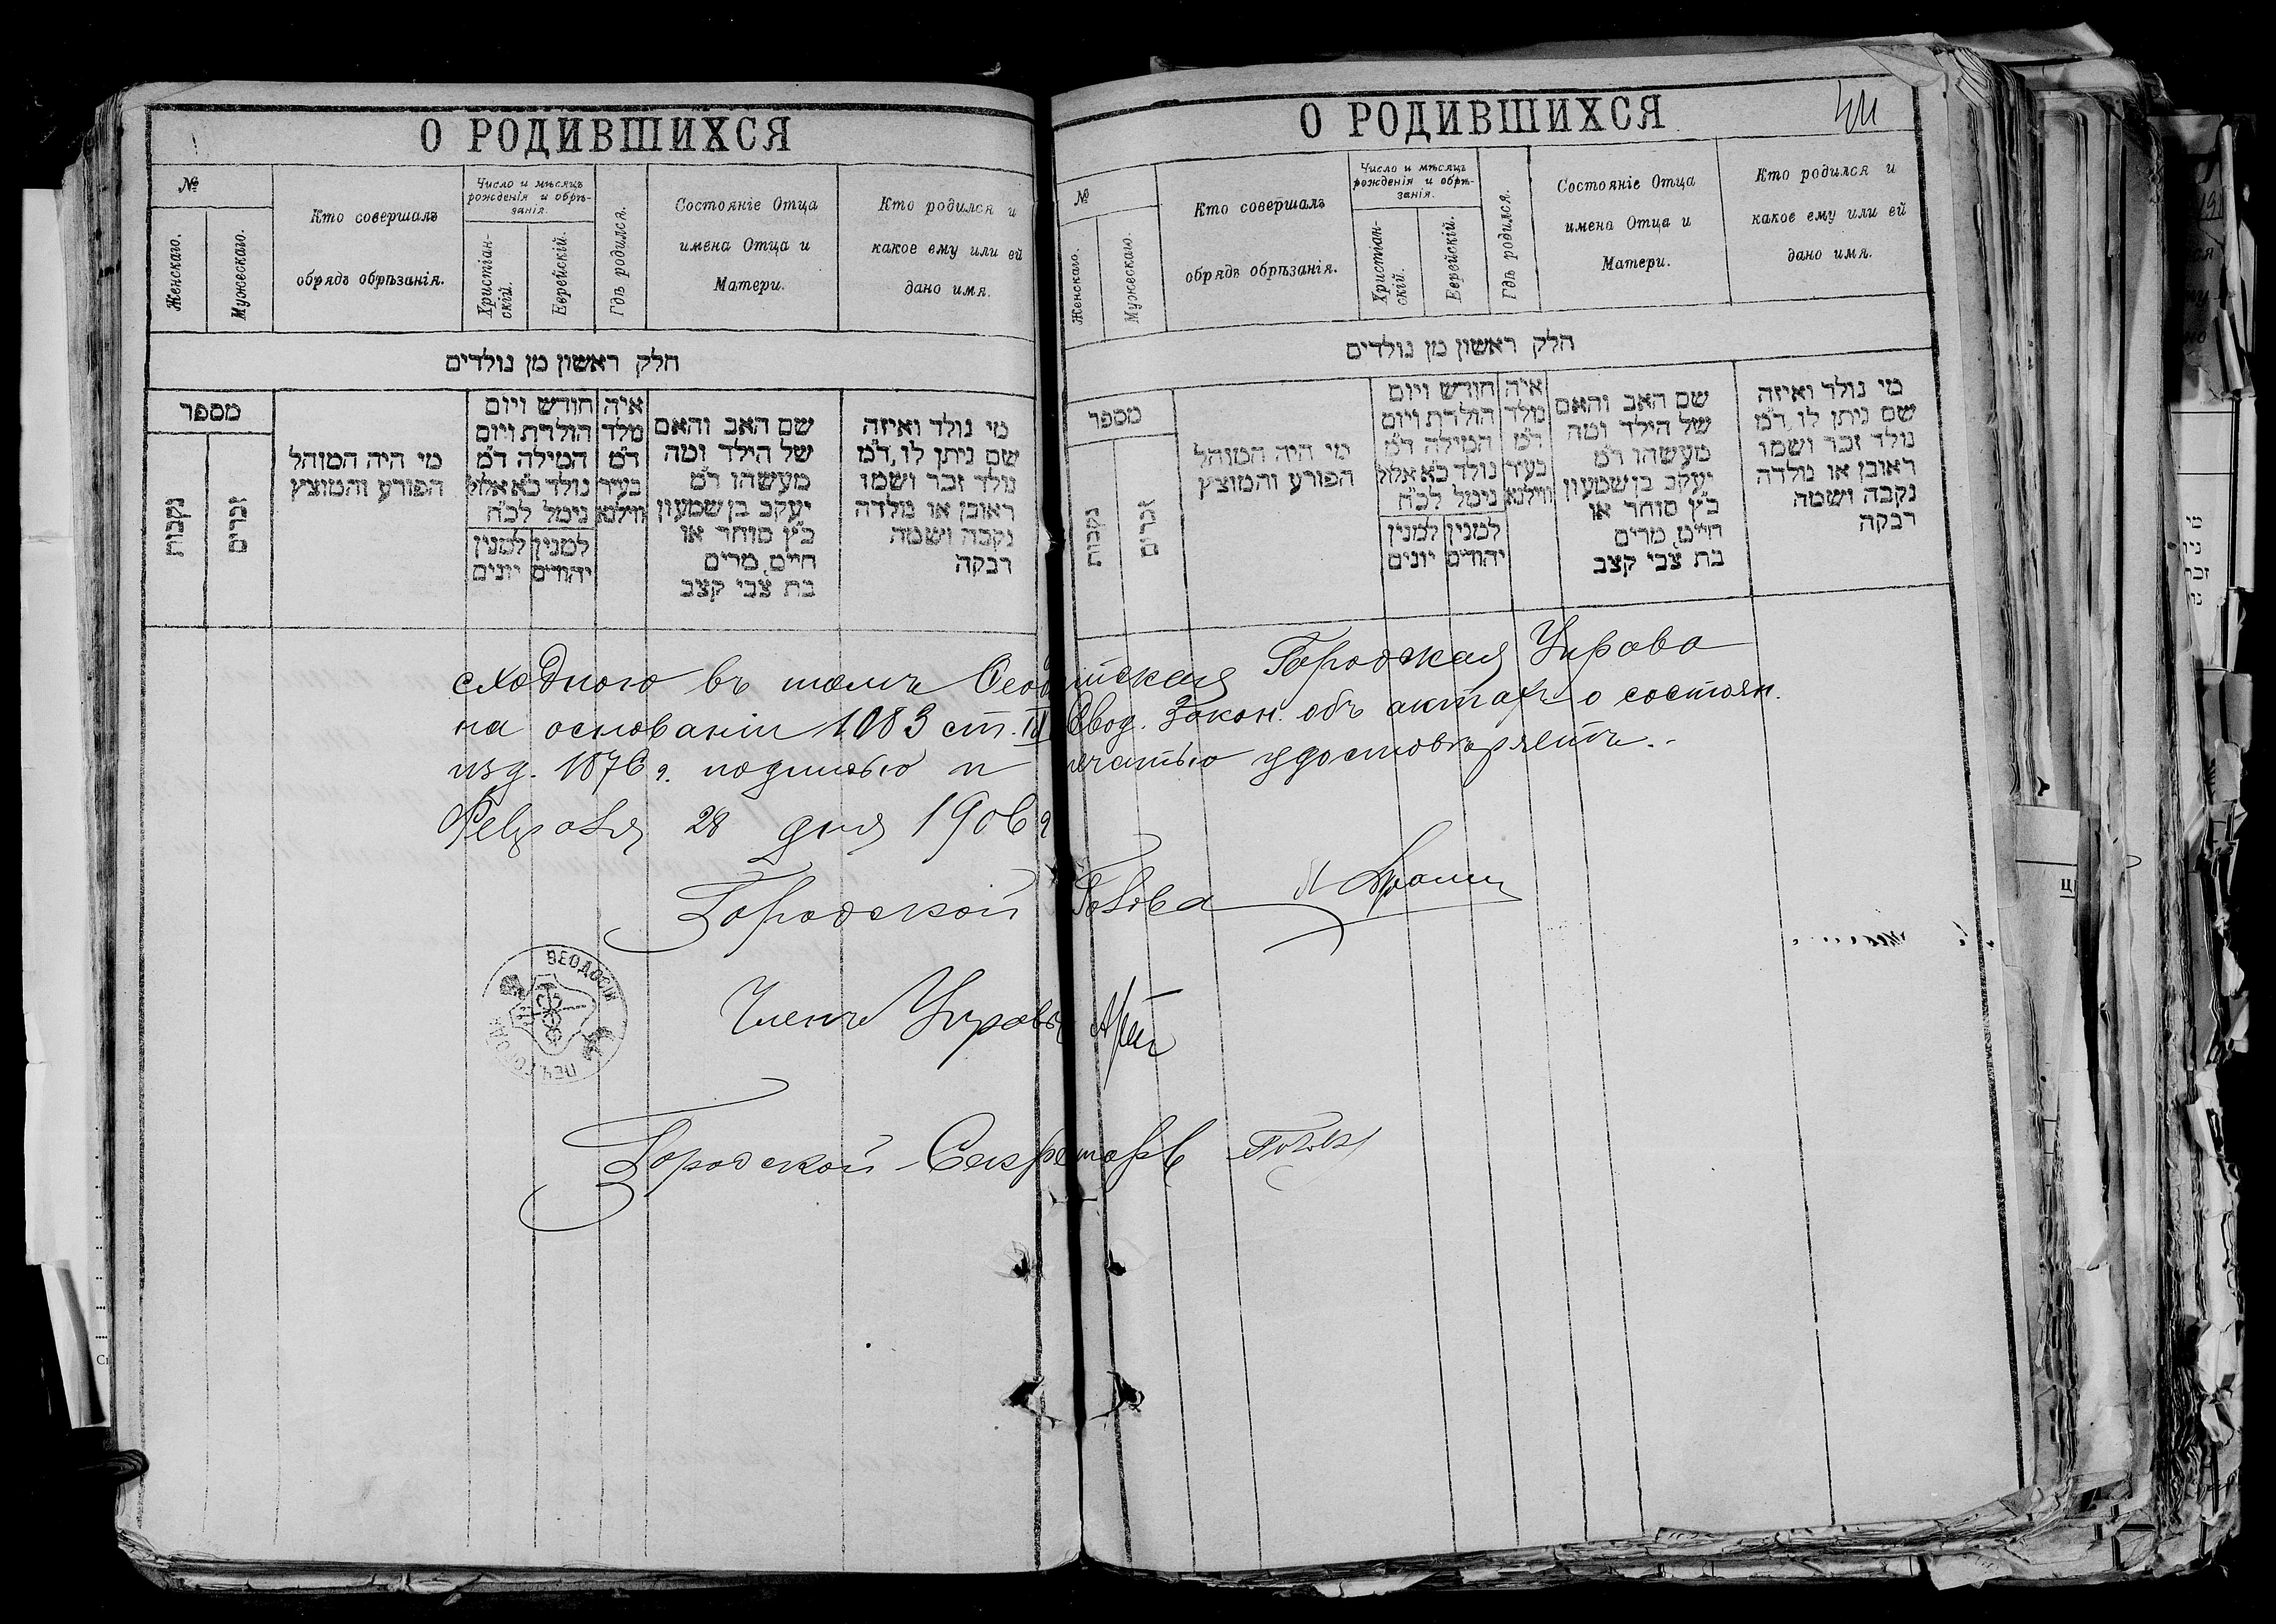 О РОДИВШИХСЯ
№
Женскаго.
Мужескаго.
Кто совершалъ
обрядъ обрѣзанія.
Число и мѣсяцъ
рожденія и обрѣ-
занія.
Христіан-
скій.
Еврейскій.
Гдѣ родился.
Состояніе Отца
имена Отца и
Матери.
Кто родился и
какое ему или ей
дано имя.
חלק ראשון מן נולדים
מספר
נקבות
זכרים
מי היה המוהל
הפורע והמוצץ
חודש ויום
הולדת ויום
המילה ד״מ
נולד כ״א אלול
נימל לכ״ח
למנין יונים
למנין יהודים
איה
מלד
ד״מ
בעיר
ווילנא
שם האב והאם
של הילד ומה
מעשהו ד״מ
יעקב בן שמעון
כ״ץ סוחר או
חייט, מרים
בת צבי קצב
מי נולד ואיזה
שם ניתן לו, ד״מ
נולד זכר ושמו
ראובן או נולדה
נקבה ושמה
רבקה
О РОДИВШИХСЯ
№
Женскаго.
Мужескаго.
Кто совершалъ
обрядъ обрѣзанія.
Число и мѣсяцъ
рожденія и обрѣ-
занія.
Христіан-
скій.
Еврейскій.
Гдѣ родился.
Состояніе Отца
имена Отца и
Матери.
Кто родился и
какое ему или ей
дано имя.
חלק ראשון מן נולדים
מספר
נקבות
זכרים
מי היה המוהל
הפורע והמוצץ
חודש ויום
הולדת ויום
המילה ד״מ
נולד כ״א אלול
נימל לכ״ח
למנין יונים
למנין יהודים
איה
מלד
ד״מ
בעיר
ווילנא
שם האב והאם
של הילד ומה
מעשהו ד״מ
יעקב בן שמעון
כ״ץ סוחר או
חייט, מרים
בת צבי קצב
מי נולד ואיזה
שם ניתן לו, ד״מ
נולד זכר ושמו
ראובן או נולדה
נקבה ושמה
רבקה
сходного въ томъ Ѳеодосійская Городская Управа
на основаніи 1083 ст. Свод. Закон. объ актахъ о состоян.
изд. 1876 г. подписью и печатью удостовѣряетъ.
Февраля 28 дня 1906 г
Городской Голова
Членъ Управы
Городской Секретарь
ѲЕОДОСІЙ
ПЕЧ. ГОРОД